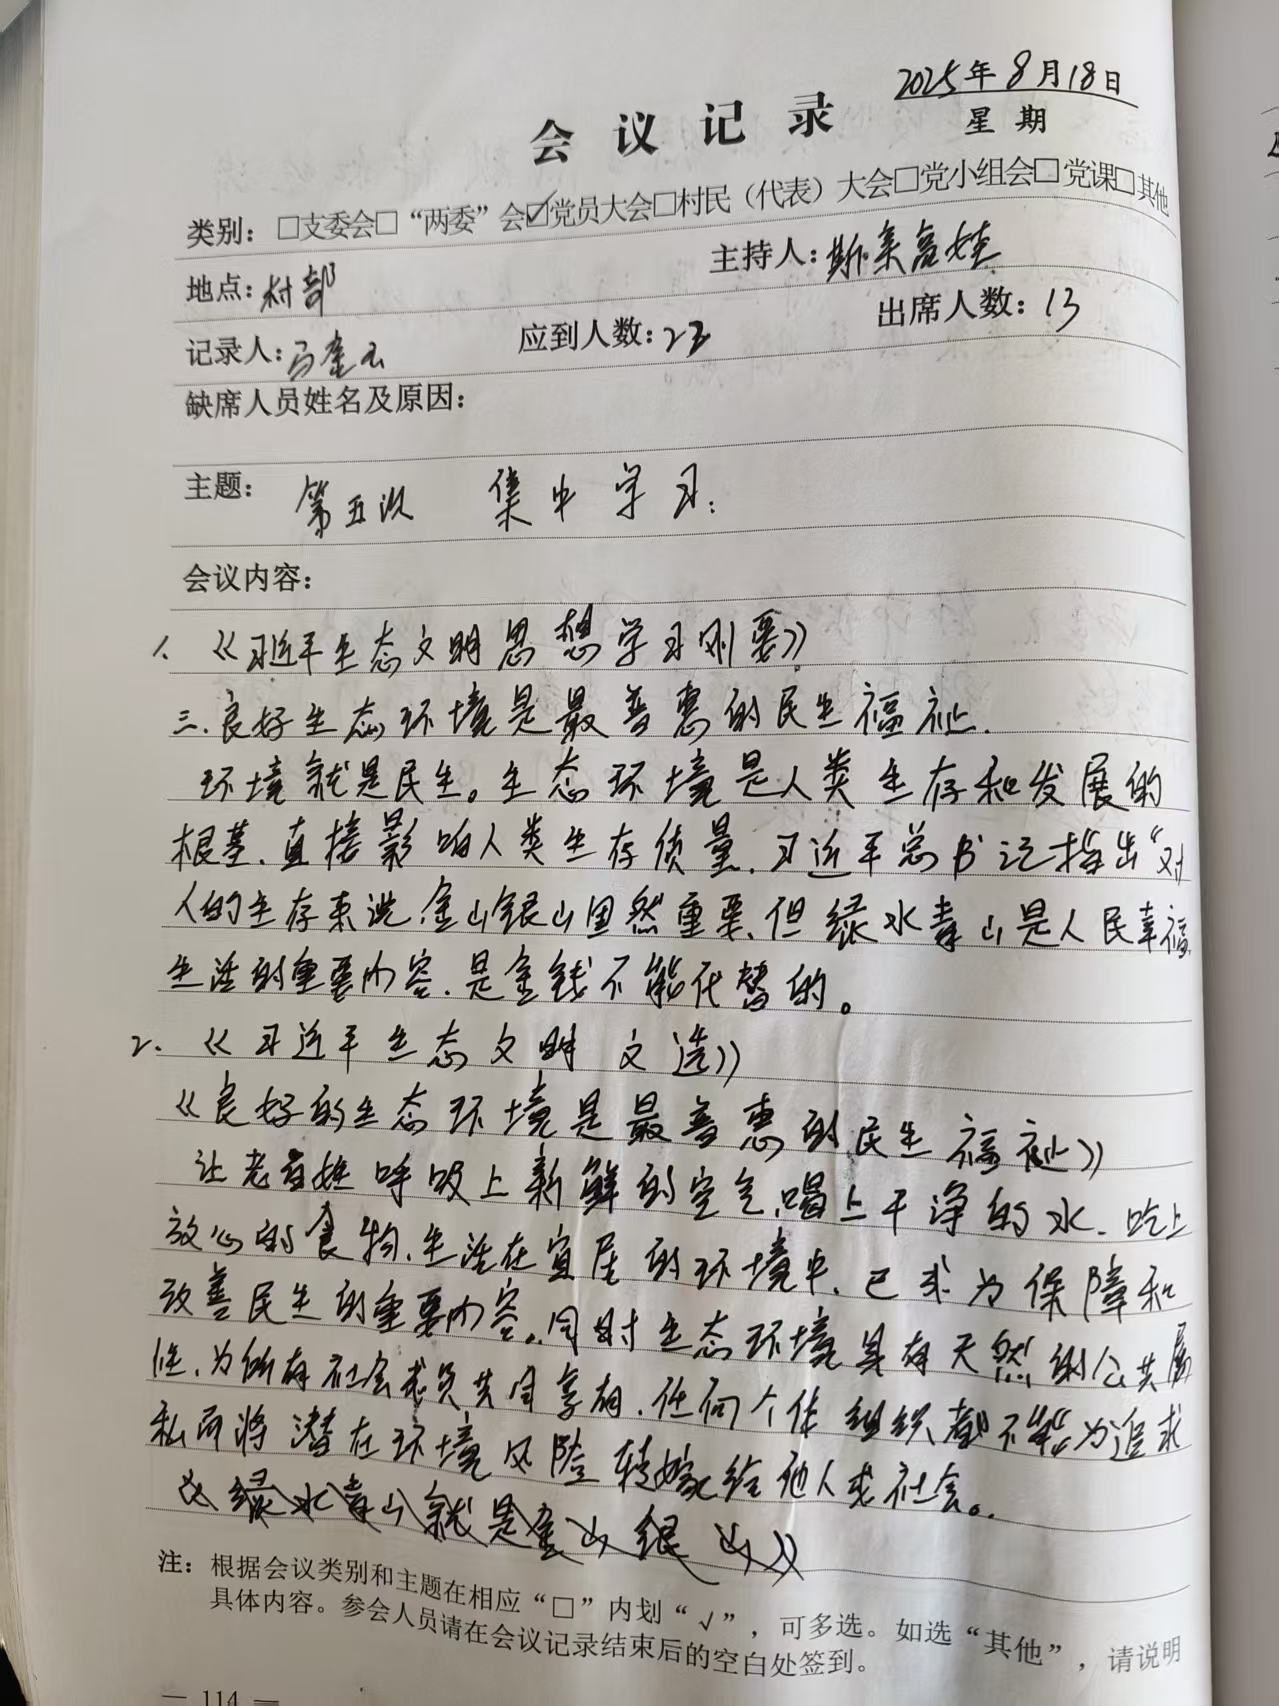 2025年8月18日
会议记录
星期
类别：□支委会□“两委”会☑党员大会□村民（代表）大会□党小组会□党课□其他
地点：村部 主持人：斯
记录人：马奎 应到人数：23 出席人数：13
缺席人员姓名及原因：
主题：第五次 集中学习：
会议内容：
1、《习近平生态文明思想学习刚要》
三、良好生态环境是最普惠的民生福祉.
环境就是民生。生态环境是人类生存和发展的
根基、直接影响人类生存质量、习近平总书记指出“对
人的生存来说、金山银山固然重要、但绿水青山是人民幸福
生活的重要内容、是金钱不能代替的。
2、《习近平生态文明 文选》
《良好的生态环境是最普惠的民生福祉》
让老百姓呼吸上新鲜的空气、喝上干净的水、吃上
放心的食物、生活在宜居的环境中、已成为保障和
改善民生的重要内容。同时生态环境具有天然的公共属
性、为所有社会成员共同享有、任何个体组织都不能为追求
私而将潜在环境风险转嫁给他人或社会。
《绿水青山就是金山银山》
注：根据会议类别和主题在相应“□”内划“√”，可多选。如选“其他”，请说明
具体内容。参会人员请在会议记录结束后的空白处签到。
— 114 —